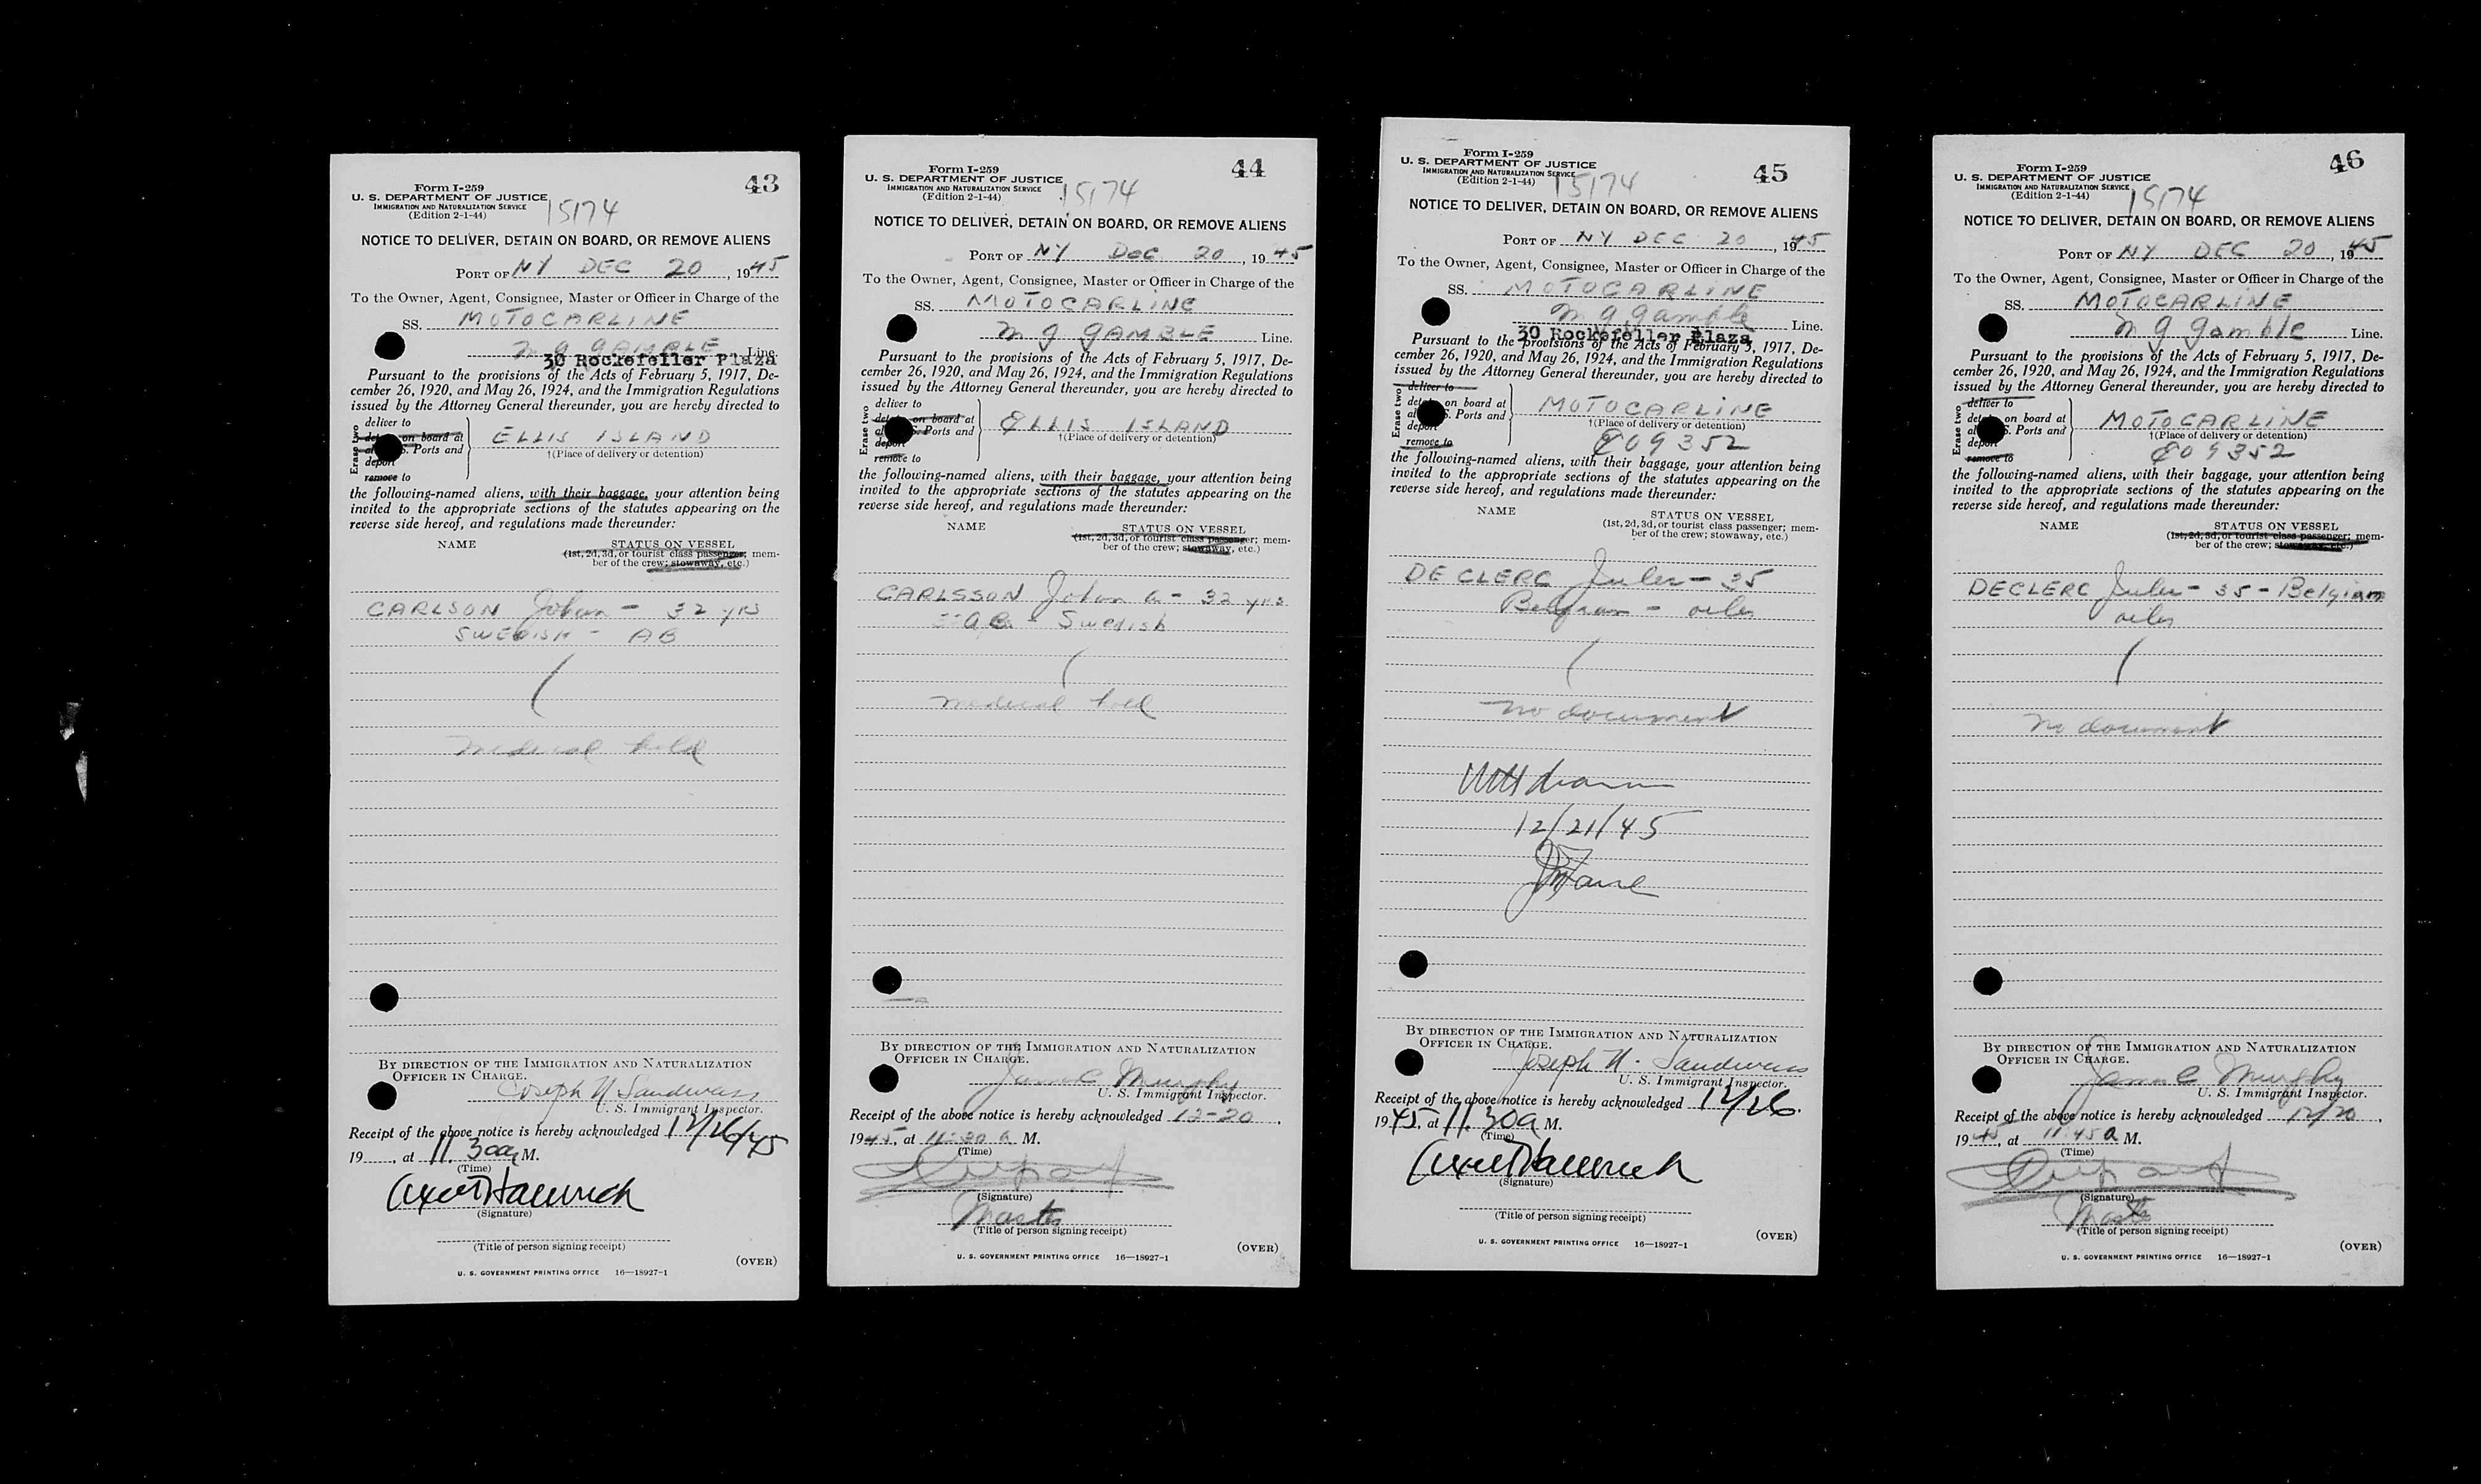 43
Form I-259
U. S. DEPARTMENT OF JUSTICE
IMMIGRATION AND NATURALIZATION SERVICE
(Edition 2-1-44)
15174
NOTICE TO DELIVER, DETAIN ON BOARD, OR REMOVE ALIENS
PORT OF NY DEC 20, 1945
To the Owner, Agent, Consignee, Master or Officer in Charge of the
SS. MOTOCARLINE
M G GAMBLE Line.
30 Rockefeller Plaza
Pursuant to the provisions of the Acts of February 5, 1917, De-
cember 26, 1920, and May 26, 1924, and the Immigration Regulations
issued by the Attorney General thereunder, you are hereby directed to
Erase two
deliver to
on board at
S. Ports and
deport
remove to
ELLIS ISLAND
†(Place of delivery or detention)
the following-named aliens, with their baggage, your attention being
invited to the appropriate sections of the statutes appearing on the
reverse side hereof, and regulations made thereunder:
NAME STATUS ON VESSEL
(1st, 2d, 3d, or tourist class passenger; mem-
ber of the crew; stowaway, etc.)
CARLSON Johan - 32 yrs
SWEDISH - AB
medical hold
BY DIRECTION OF THE IMMIGRATION AND NATURALIZATION
OFFICER IN CHARGE.
Joseph
U. S. Immigrant Inspector.
Receipt of the above notice is hereby acknowledged 12/26/45
19, at 11.30a M.
(Time)
(Signature)
(Title of person signing receipt)
(OVER)
U. S. GOVERNMENT PRINTING OFFICE 16—18927-1
44
Form I-259
U. S. DEPARTMENT OF JUSTICE
IMMIGRATION AND NATURALIZATION SERVICE
(Edition 2-1-44)
15174
NOTICE TO DELIVER, DETAIN ON BOARD, OR REMOVE ALIENS
PORT OF NY DEC 20, 1945
To the Owner, Agent, Consignee, Master or Officer in Charge of the
SS. MOTOCARLINE
M G GAMBLE Line.
Pursuant to the provisions of the Acts of February 5, 1917, De-
cember 26, 1920, and May 26, 1924, and the Immigration Regulations
issued by the Attorney General thereunder, you are hereby directed to
Erase two
deliver to
on board at
S. Ports and
deport
remove to
ELLIS ISLAND
†(Place of delivery or detention)
the following-named aliens, with their baggage, your attention being
invited to the appropriate sections of the statutes appearing on the
reverse side hereof, and regulations made thereunder:
NAME STATUS ON VESSEL
(1st, 2d, 3d, or tourist class passenger; mem-
ber of the crew; stowaway, etc.)
CARLSSON Johan A - 32 yrs
AB - Swedish
medical hold
BY DIRECTION OF THE IMMIGRATION AND NATURALIZATION
OFFICER IN CHARGE.
James Murphy
U. S. Immigrant Inspector.
Receipt of the above notice is hereby acknowledged 12-20,
1945, at 11:30 a M.
(Time)
(Signature)
Master
(Title of person signing receipt)
(OVER)
U. S. GOVERNMENT PRINTING OFFICE 16—18927-1
45
Form I-259
U. S. DEPARTMENT OF JUSTICE
IMMIGRATION AND NATURALIZATION SERVICE
(Edition 2-1-44)
15174
NOTICE TO DELIVER, DETAIN ON BOARD, OR REMOVE ALIENS
PORT OF NY DEC 20, 1945
To the Owner, Agent, Consignee, Master or Officer in Charge of the
SS. MOTOCARLINE
M G Gamble Line.
30 Rockefeller Plaza
Pursuant to the provisions of the Acts of February 5, 1917, De-
cember 26, 1920, and May 26, 1924, and the Immigration Regulations
issued by the Attorney General thereunder, you are hereby directed to
Erase two
deliver to
on board at
S. Ports and
deport
remove to
MOTOCARLINE
†(Place of delivery or detention)
809352
the following-named aliens, with their baggage, your attention being
invited to the appropriate sections of the statutes appearing on the
reverse side hereof, and regulations made thereunder:
NAME STATUS ON VESSEL
(1st, 2d, 3d, or tourist class passenger; mem-
ber of the crew; stowaway, etc.)
DE CLERC Jules - 35
Belgian - oiler
no document
12/21/45
BY DIRECTION OF THE IMMIGRATION AND NATURALIZATION
OFFICER IN CHARGE.
Joseph
U. S. Immigrant Inspector.
Receipt of the above notice is hereby acknowledged 12/26.
1945, at 11.30a M.
(Time)
(Signature)
(Title of person signing receipt)
(OVER)
U. S. GOVERNMENT PRINTING OFFICE 16—18927-1
46
Form I-259
U. S. DEPARTMENT OF JUSTICE
IMMIGRATION AND NATURALIZATION SERVICE
(Edition 2-1-44)
15174
NOTICE TO DELIVER, DETAIN ON BOARD, OR REMOVE ALIENS
PORT OF NY DEC 20, 1945
To the Owner, Agent, Consignee, Master or Officer in Charge of the
SS. MOTOCARLINE
M G Gamble Line.
Pursuant to the provisions of the Acts of February 5, 1917, De-
cember 26, 1920, and May 26, 1924, and the Immigration Regulations
issued by the Attorney General thereunder, you are hereby directed to
Erase two
deliver to
on board at
S. Ports and
deport
remove to
MOTOCARLINE
†(Place of delivery or detention)
809352
the following-named aliens, with their baggage, your attention being
invited to the appropriate sections of the statutes appearing on the
reverse side hereof, and regulations made thereunder:
NAME STATUS ON VESSEL
(1st, 2d, 3d, or tourist class passenger; mem-
ber of the crew; stowaway, etc.)
DECLERC Jules - 35 - Belgian
oiler
No document
BY DIRECTION OF THE IMMIGRATION AND NATURALIZATION
OFFICER IN CHARGE.
James Murphy
U. S. Immigrant Inspector.
Receipt of the above notice is hereby acknowledged 12/20,
1945, at 11:45 a M.
(Time)
(Signature)
Master
(Title of person signing receipt)
(OVER)
U. S. GOVERNMENT PRINTING OFFICE 16—18927-1